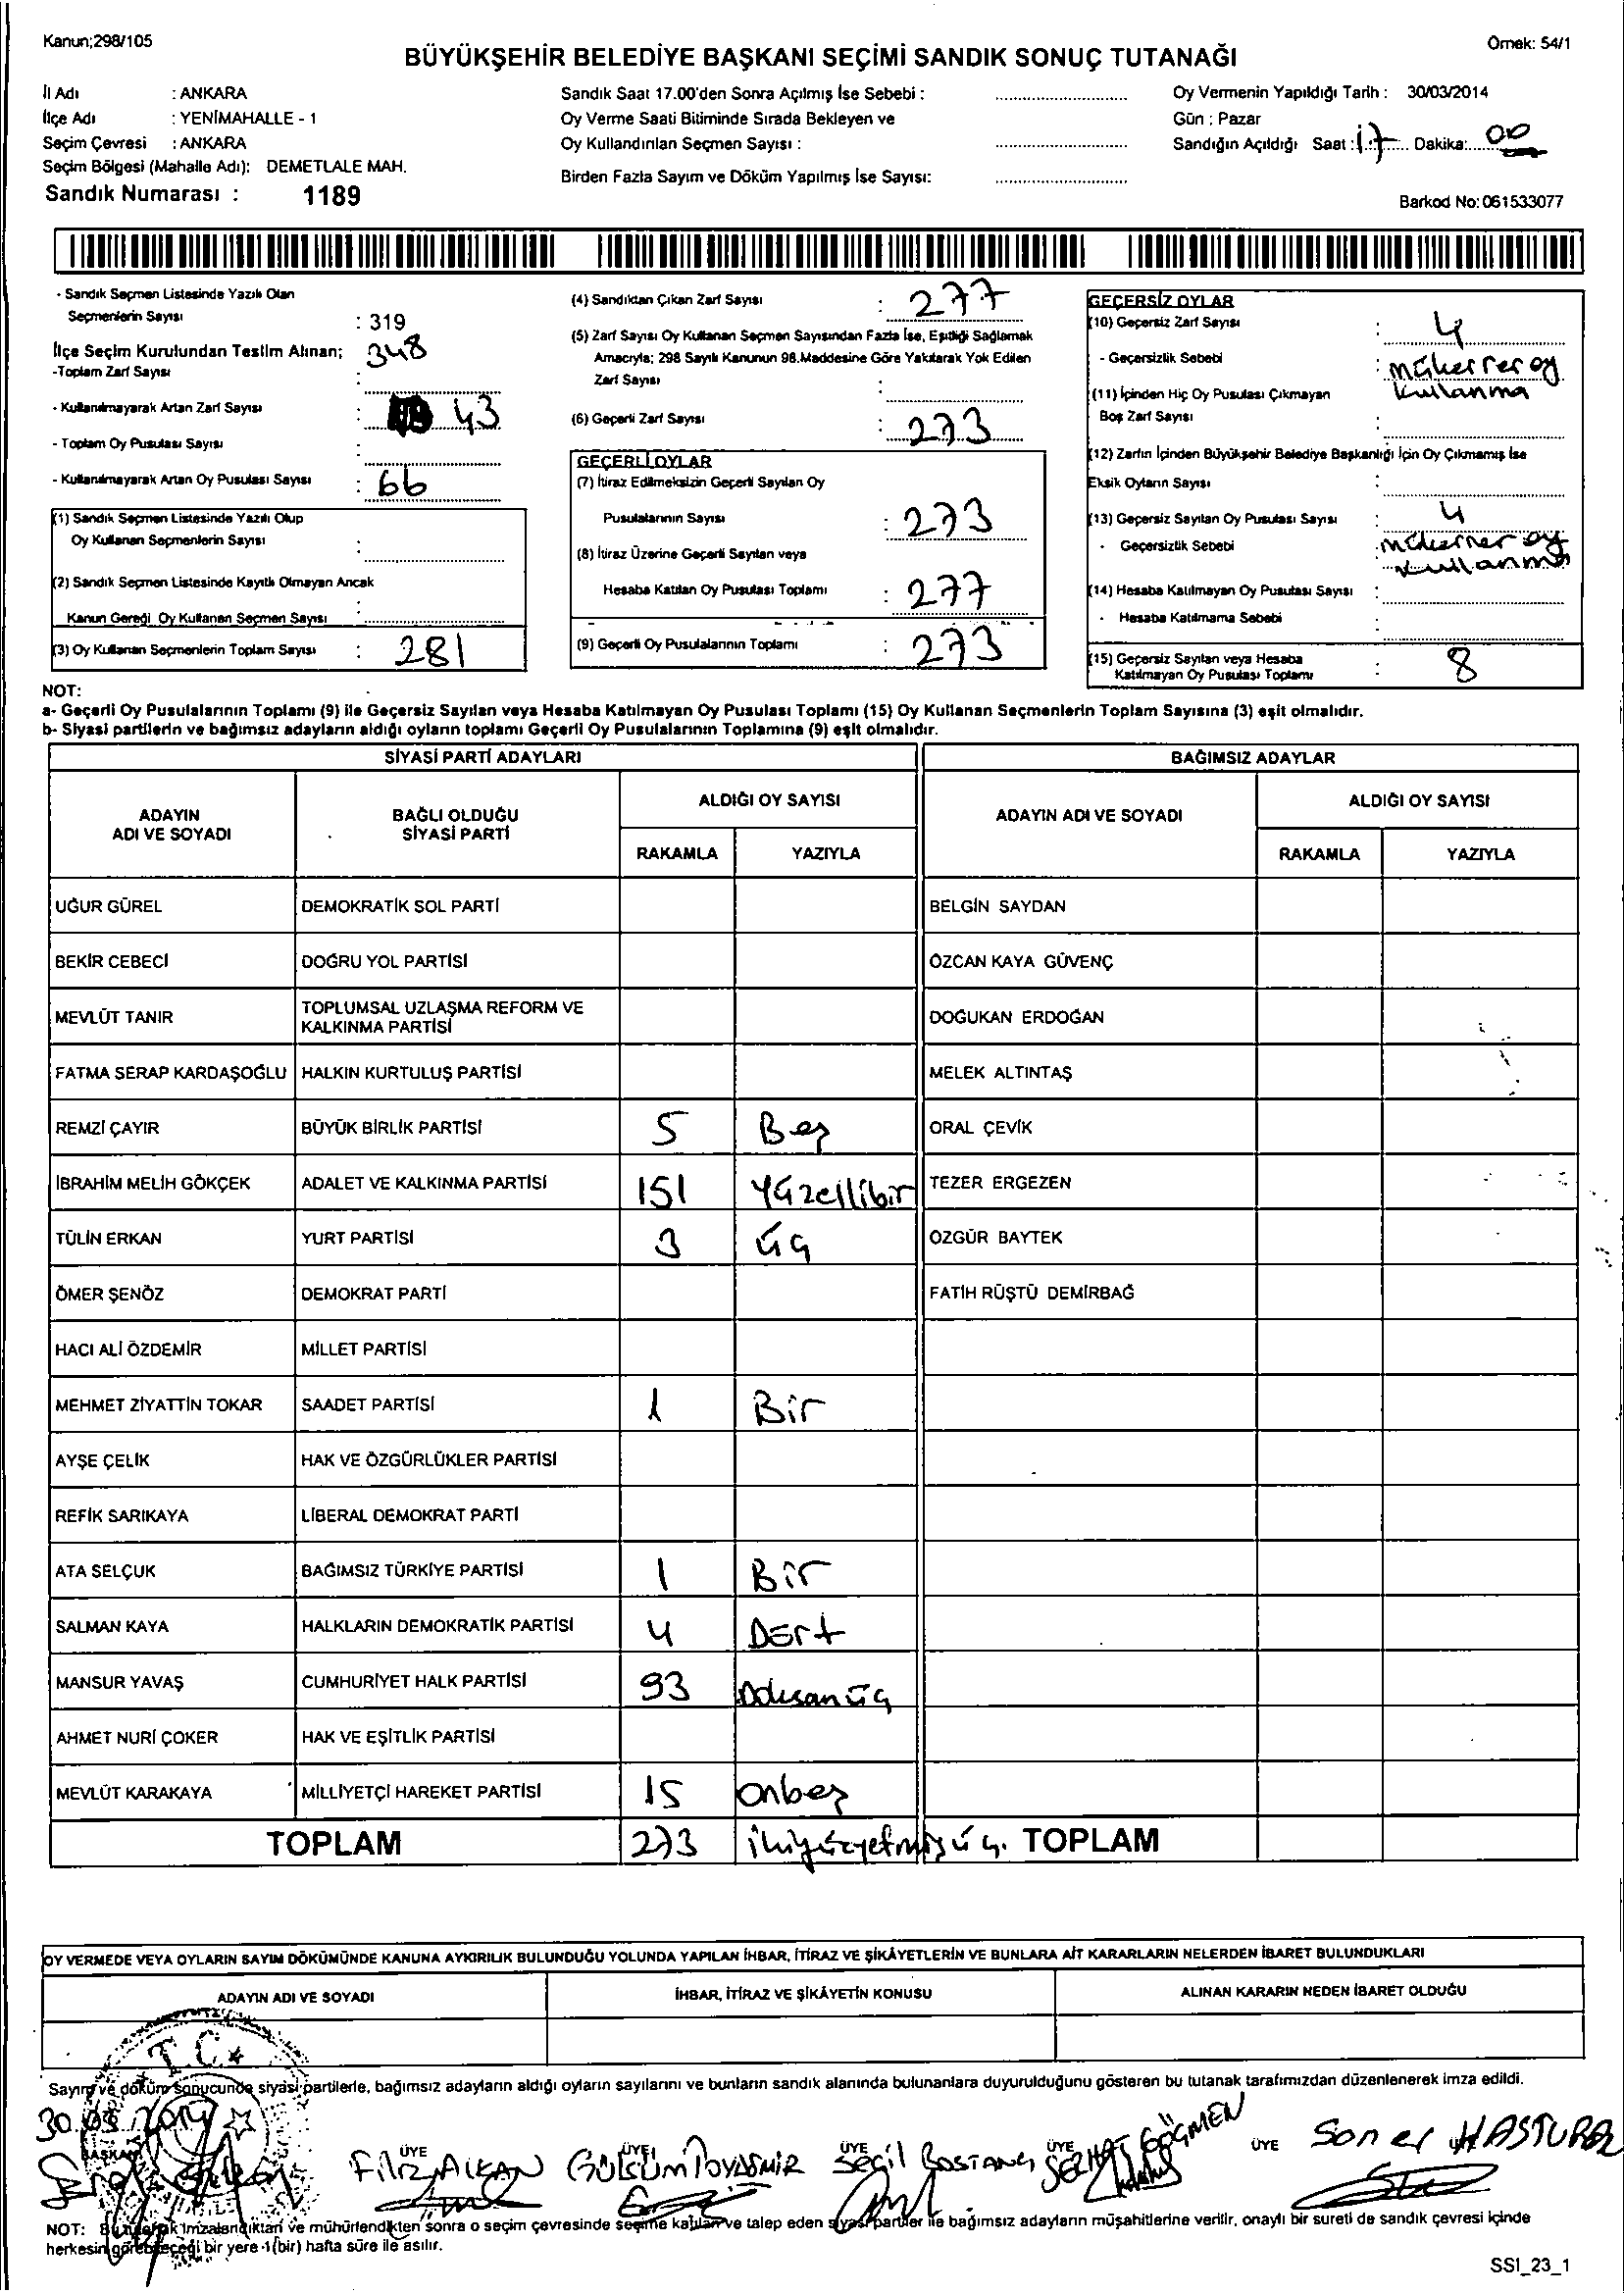 Kanun;298/105
Örnek: 54/1
BÜYÜKŞEHİR BELEDİYE BAŞKANI SEÇİMİ SANDIK SONUÇ TUTANAĞI
İl Adı : ANKARA
İlçe Adı : YENİMAHALLE - 1
Seçim Çevresi : ANKARA
Seçim Bölgesi (Mahalle Adı): DEMETLALE MAH.
Sandık Numarası : 1189
Sandık Saat 17.00'den Sonra Açılmış İse Sebebi :
Oy Verme Saati Bitiminde Sırada Bekleyen ve
Oy Kullandırılan Seçmen Sayısı :
Birden Fazla Sayım ve Döküm Yapılmış İse Sayısı:
Oy Vermenin Yapıldığı Tarih : 30/03/2014
Gün : Pazar
Sandığın Açıldığı Saat : 17 Dakika: 00
Barkod No: 061533077
- Sandık Seçmen Listesinde Yazılı Olan
Seçmenlerin Sayısı : 319
İlçe Seçim Kurulundan Teslim Alınan; 348
-Toplam Zarf Sayısı :
- Kullanılmayarak Artan Zarf Sayısı : 43
- Toplam Oy Pusulası Sayısı :
- Kullanılmayarak Artan Oy Pusulası Sayısı : 66
(1) Sandık Seçmen Listesinde Yazılı Olup
Oy Kullanan Seçmenlerin Sayısı :
(2) Sandık Seçmen Listesinde Kayıtlı Olmayan Ancak
Kanun Gereği Oy Kullanan Seçmen Sayısı :
(3) Oy Kullanan Seçmenlerin Toplam Sayısı : 281
(4) Sandıktan Çıkan Zarf Sayısı : 277
(5) Zarf Sayısı Oy Kullanan Seçmen Sayısından Fazla İse, Eşitliği Sağlamak
Amacıyla; 298 Sayılı Kanunun 98.Maddesine Göre Yakılarak Yok Edilen
Zarf Sayısı :
(6) Geçerli Zarf Sayısı : 273
GEÇERLİ OYLAR
(7) İtiraz Edilmeksizin Geçerli Sayılan Oy
Pusulalarının Sayısı : 273
(8) İtiraz Üzerine Geçerli Sayılan veya
Hesaba Katılan Oy Pusulası Toplamı : 277
(9) Geçerli Oy Pusulalarının Toplamı : 273
GEÇERSİZ OYLAR
(10) Geçersiz Zarf Sayısı : 4
- Geçersizlik Sebebi : mükerrer oy
kullanma
(11) İçinden Hiç Oy Pusulası Çıkmayan
Boş Zarf Sayısı :
(12) Zarfın İçinden Büyükşehir Belediye Başkanlığı İçin Oy Çıkmamış İse
Eksik Oyların Sayısı :
(13) Geçersiz Sayılan Oy Pusulası Sayısı : 4
- Geçersizlik Sebebi : mükerrer oy
kullanma
(14) Hesaba Katılmayan Oy Pusulası Sayısı :
- Hesaba Katılmama Sebebi :
(15) Geçersiz Sayılan veya Hesaba
Katılmayan Oy Pusulası Toplamı : 8
NOT:
a- Geçerli Oy Pusulalarının Toplamı (9) ile Geçersiz Sayılan veya Hesaba Katılmayan Oy Pusulası Toplamı (15) Oy Kullanan Seçmenlerin Toplam Sayısına (3) eşit olmalıdır.
b- Siyasi partilerin ve bağımsız adayların aldığı oyların toplamı Geçerli Oy Pusulalarının Toplamına (9) eşit olmalıdır.
SİYASİ PARTİ ADAYLARI BAĞIMSIZ ADAYLAR
ADAYIN ADI VE SOYADI BAĞLI OLDUĞU SİYASİ PARTİ ALDIĞI OY SAYISI ADAYIN ADI VE SOYADI ALDIĞI OY SAYISI
RAKAMLA YAZIYLA RAKAMLA YAZIYLA
UĞUR GÜREL DEMOKRATİK SOL PARTİ BELGİN SAYDAN
BEKİR CEBECİ DOĞRU YOL PARTİSİ ÖZCAN KAYA GÜVENÇ
MEVLÜT TANIR TOPLUMSAL UZLAŞMA REFORM VE KALKINMA PARTİSİ DOĞUKAN ERDOĞAN
FATMA SERAP KARDAŞOĞLU HALKIN KURTULUŞ PARTİSİ MELEK ALTINTAŞ
REMZİ ÇAYIR BÜYÜK BİRLİK PARTİSİ 5 Beş ORAL ÇEVİK
İBRAHİM MELİH GÖKÇEK ADALET VE KALKINMA PARTİSİ 151 Yüzellibir TEZER ERGEZEN
TÜLİN ERKAN YURT PARTİSİ 3 üç ÖZGÜR BAYTEK
ÖMER ŞENÖZ DEMOKRAT PARTİ FATİH RÜŞTÜ DEMİRBAĞ
HACI ALİ ÖZDEMİR MİLLET PARTİSİ
MEHMET ZİYATTİN TOKAR SAADET PARTİSİ 1 Bir
AYŞE ÇELİK HAK VE ÖZGÜRLÜKLER PARTİSİ
REFİK SARIKAYA LİBERAL DEMOKRAT PARTİ
ATA SELÇUK BAĞIMSIZ TÜRKİYE PARTİSİ 1 Bir
SALMAN KAYA HALKLARIN DEMOKRATİK PARTİSİ 4 Dört
MANSUR YAVAŞ CUMHURİYET HALK PARTİSİ 93 Doksanüç
AHMET NURİ ÇOKER HAK VE EŞİTLİK PARTİSİ
MEVLÜT KARAKAYA MİLLİYETÇİ HAREKET PARTİSİ 15 onbeş
TOPLAM 273 ikiyüzyetmişüç. TOPLAM
OY VERMEDE VEYA OYLARIN SAYIM DÖKÜMÜNDE KANUNA AYKIRILIK BULUNDUĞU YOLUNDA YAPILAN İHBAR, İTİRAZ VE ŞİKÂYETLERİN VE BUNLARA AİT KARARLARIN NELERDEN İBARET BULUNDUKLARI
ADAYIN ADI VE SOYADI İHBAR, İTİRAZ VE ŞİKÂYETİN KONUSU ALINAN KARARIN NEDEN İBARET OLDUĞU
T.C.
Sayım ve döküm sonucunda siyasi partilerle, bağımsız adayların aldığı oyların sayılarını ve bunların sandık alanında bulunanlara duyurulduğunu gösteren bu tutanak tarafımızdan düzenlenerek imza edildi.
30.03.2014
BAŞKAN ÜYE ÜYE ÜYE ÜYE ÜYE
Filiz ALKAN Gülsüm Seçil BOSTANCI SERHAT GÖÇMEN Soner HASTURAL
NOT: Bu tutanak imzalandıktan ve mühürlendikten sonra o seçim çevresinde seçime katılan ve talep eden siyasi partiler ile bağımsız adayların müşahitlerine verilir, onaylı bir sureti de sandık çevresi içinde
herkesin görebileceği bir yere 1(bir) hafta süre ile asılır.
SSI_23_1